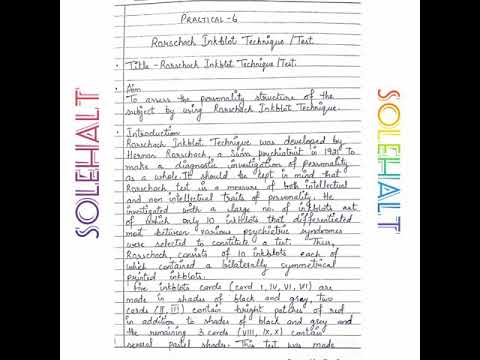 PRACTICAL - 6
Rorschach Inkblot Technique / Test.
Title - Rorschach Inkblot Technique / Test.
Aim
To assess the personality structure of the
subject by using Rorschach Inkblot Technique.
Introduction
Rorschach Inkblot Technique was developed by
Herman Rorschach, a Swiss psychiatrist in 1921 to
make a diagnostic investigation of personality
as a whole. It should be kept in mind that
Rorschach test is a measure of both intellectual
and non intellectual traits of personality. He
investigated with a large no. of inkblots out
of which only 10 inkblots that differentiated
most between various psychiatric syndromes
were selected to constitute a test. Thus,
Rorschach, consists of 10 inkblots each of
which contained a bilaterally symmetrical
printed inkblots.
Five inkblots cards (card I, IV, VI, VII) are
made in shades of black and grey, two
cards (II, III) contain bright patches of red
in addition to shades of black and grey and
the remaining 3 cards (VIII, IX, X) contain
several pastel shades. This test was made
SOLEHALT
SOLEHALT